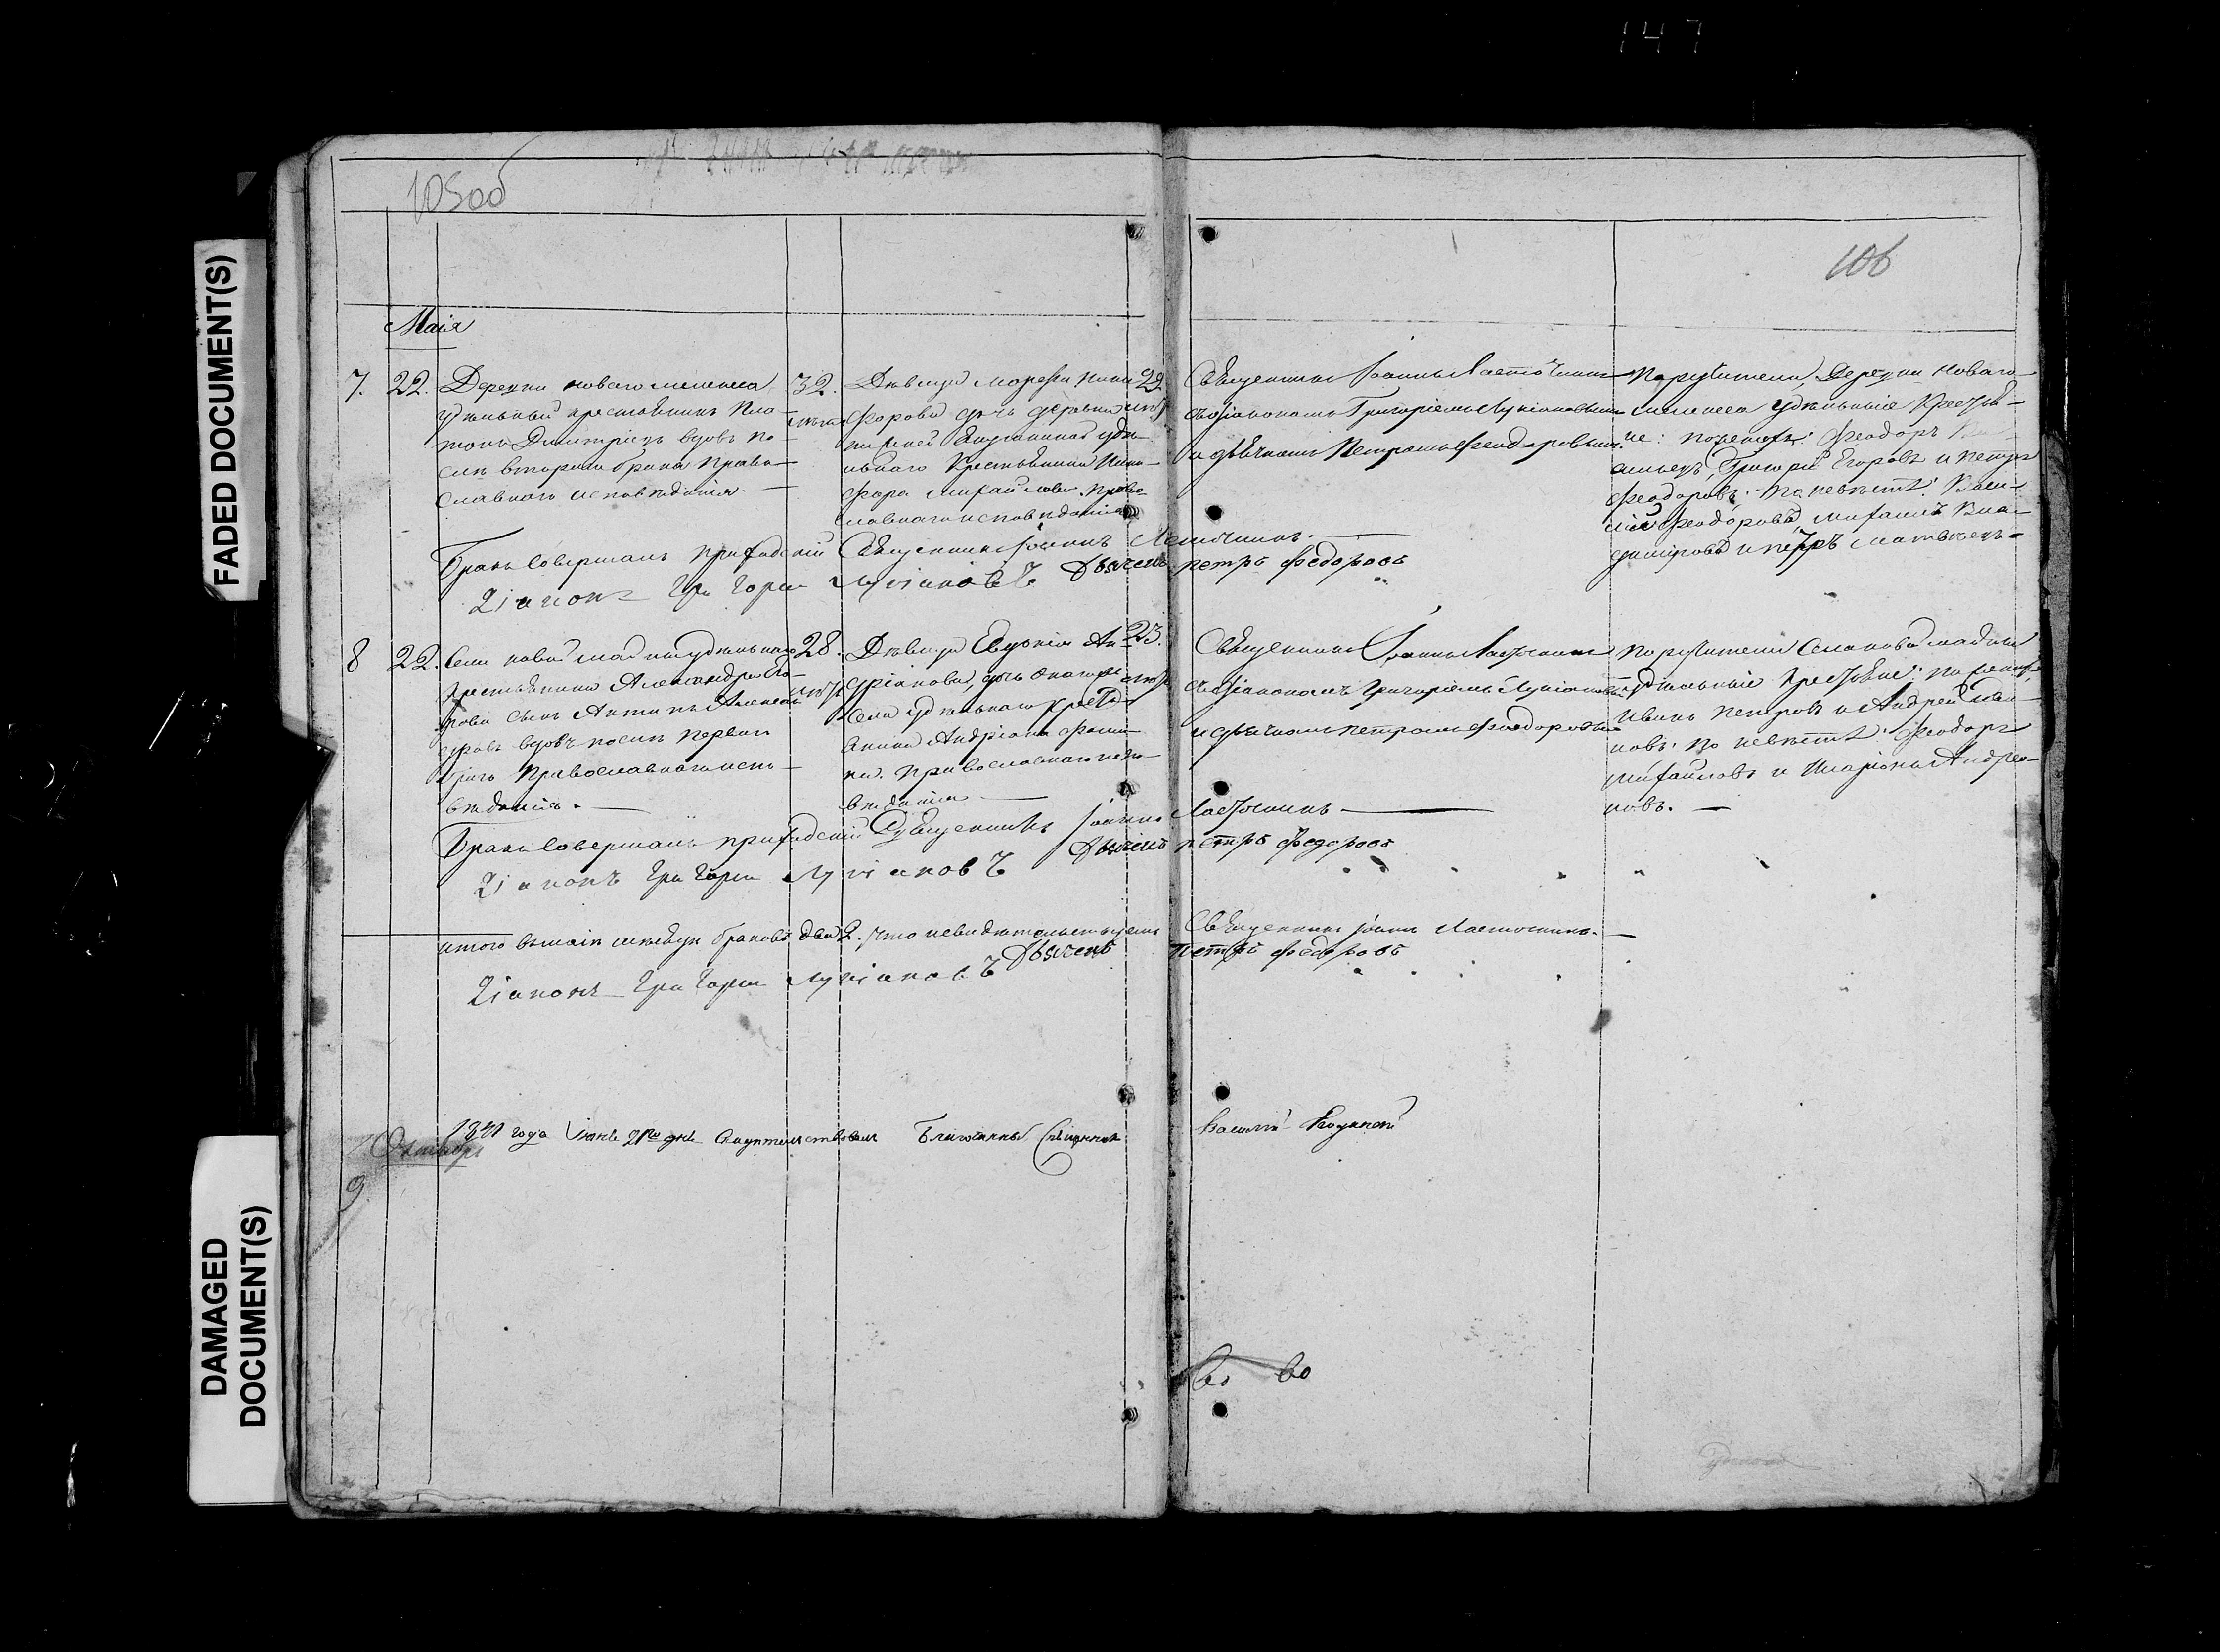 147
FADED DOCUMENT(S)
DAMAGED DOCUMENT(S)
105об
106
Маія
7. 22. Деревни новаго
удѣльный крестьянинъ Пла-
тонъ Димитріевъ вдовъ по-
слѣ втораго брака Право-
славнаго исповѣданія. —
32.
Дѣвица Марѳа Ники-
форова дочь деревни
удѣ-
льнаго Крестьянина Ники-
фора Михайлова. право-
славнаго исповѣданія
22
Священникъ Іоаннъ Ласточкинъ
съ діакономъ Григоріемъ Лукіановымъ
и дьячкомъ Петромъ Феодоровымъ.
Поручители, Деревни Новаго
удѣльные Крестья-
не: по женихѣ: Феодоръ
Григорій Егоровъ и Петръ
Феодоровъ: по невѣстѣ: Васи-
лій Феодоровъ, Михаилъ Вла-
диміровъ и петръ Матвѣевъ-
Бракъ Совершалъ приходскій Священникъ Іоаннъ Ласточкинъ —
Діаконъ Григорій Лукіановъ Дьячекъ петръ федоровъ
8 22. Села удѣльнаго
крестьянина Александра
сынъ Антипъ Александровъ
вдовъ послѣ перваго
брака Православнаго испо-
вѣданія. —
28.
Дѣвица Евдокія Ан-
дріанова, дочь онагоже
Села удѣльнаго крестья-
нина Андріана
Православнаго испо-
вѣданія —
23.
Священникъ Іоаннъ Ласточкинъ
съ діакономъ Григоріемъ Лукіановымъ
и дьячкомъ Петромъ Феодоровымъ
поручители
удѣльные крестьяне: по женихѣ
Иванъ Петровъ и Андрей
по невѣстѣ: Феодоръ
Михайловъ и Иларіонъ Андреа-
новъ. —
Бракъ Совершалъ приходскій Священникъ Іоаннъ Ласточкинъ —
Діаконъ Григорій Лукіановъ Дьячекъ петръ федоровъ
итого въ маіѣ мѣсяцѣ браковъ два 2. что Священникъ Іоаннъ Ласточкинъ. —
Діаконъ Григорій Лукіановъ Дьячекъ петръ федоровъ
1841 года Іюня 21го дня Свидѣтельствовалъ Благочинный Священникъ Василій
Октябрь
9